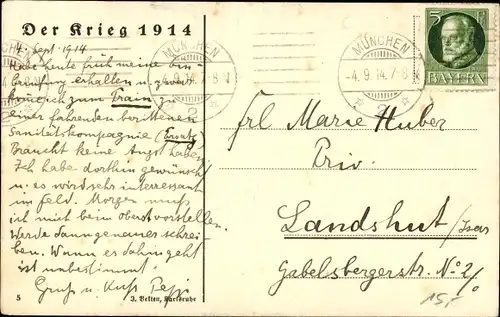 Der Krieg 1914
4. Sept. 1914
Habe heute früh meine Ein-
berufung erhalten u. zwar
zum Train zu
einer fahrenden berittenen
Sanitätskompagnie (Ersatz)
Braucht keine Angst haben
Ich habe dorthin gewünscht
u. es wird sehr interressant
im Feld. Morgen muß
ich mich beim Oberst vorstellen.
Werde dann genauer schrei-
ben. Wann es dahin geht
ist unbestimmt.
Gruß u. Kuß Peppi
5 J. Velten, Karlsruhe
MÜNCHEN
-4.9.14
2
MÜNCHEN
-4.9.14.7-8
2
5
BAYERN
Frl Marie Huber
Priv.
Landshut /Isar
Gabelsbergerstr. No 2/0